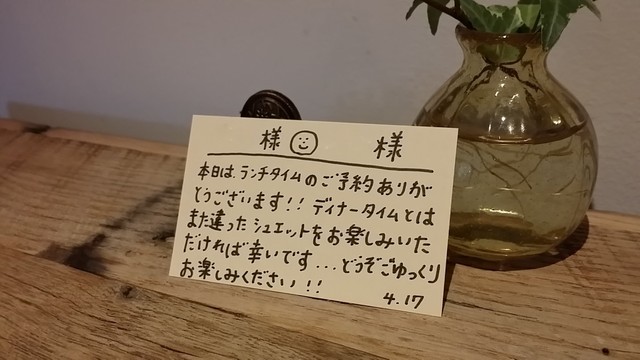 様 様
本日は、ランチタイムのご予約ありが
とうございます!! ディナータイムとは
また違ったシュエットをお楽しみいた
だければ幸いです...どうぞごゆっくり
お楽しみください!!
4.17